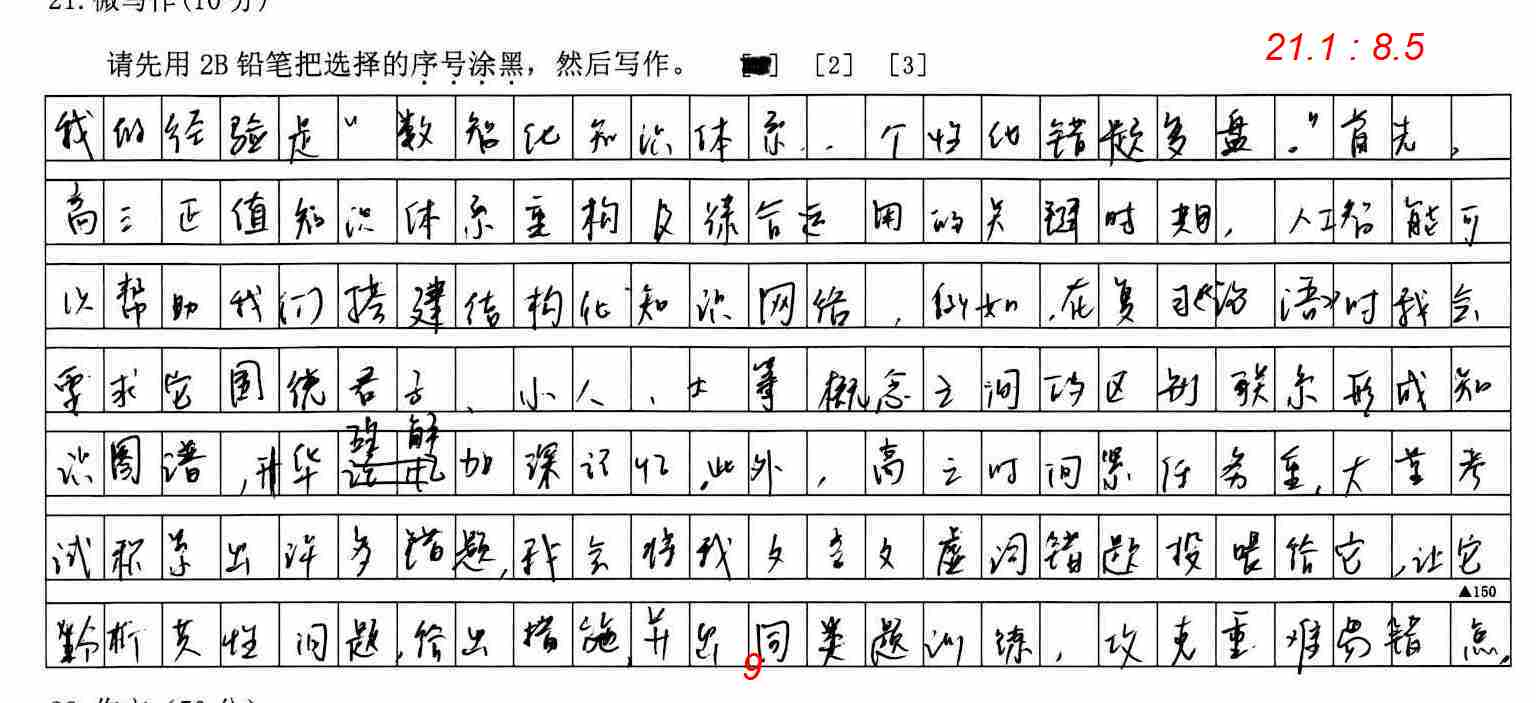 21.微写作(10分)
请先用 2B 铅笔把选择的序号涂黑，然后写作。 [2] [3]
21.1 : 8.5
我的经验是“数智化知识体系、个性化错题多盘。”首先，
高三正值知识体系重构及综合运用的关键时期，人工智能可
以帮助我们搭建结构化知识网络，例如，在复习《论语》时我会
要求它围绕君子、小人、士等概念之间的区别联系形成知
识图谱，升华理解加深记忆。此外，高三时间紧任务重，大量考
试积累出许多错题，我会将我文言文虚词错题投喂给它，让它
▲150
分析共性问题，给出措施，并出同类题训练，攻克重难易错点。
9